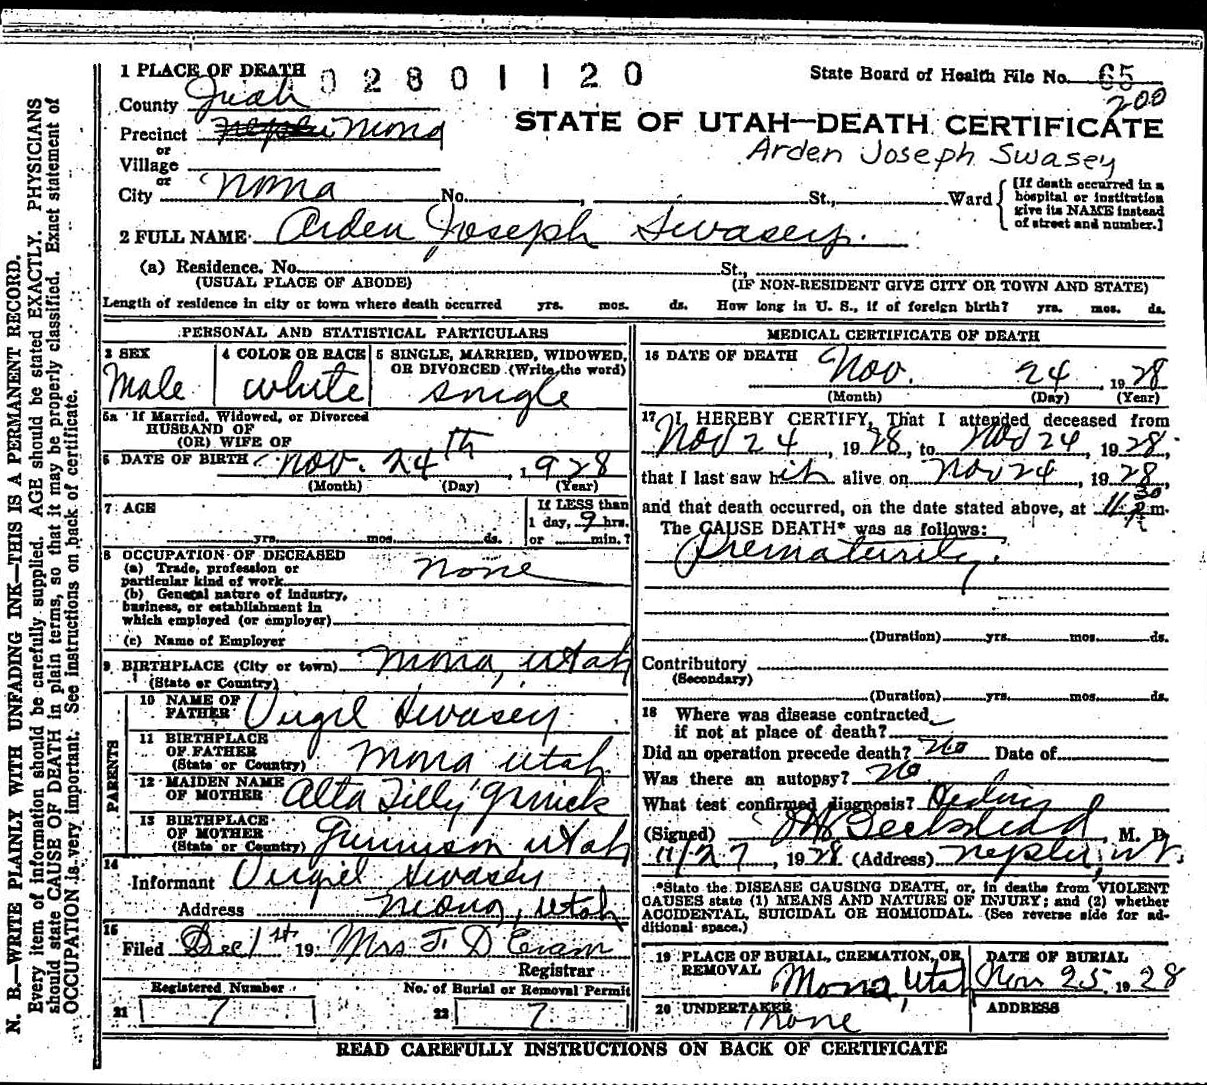 1 PLACE OF DEATH 02801120 State Board of Health File No. 65
200
County Juab
Precinct Nephi Mona
STATE OF UTAH—DEATH CERTIFICATE
or
Village
Arden Joseph Swasey
or
City Mona No. , St., Ward { [If death occurred in a hospital or institution give its NAME instead of street and number.]
2 FULL NAME Arden Joseph Swasey.
(a) Residence. No. St.,
(USUAL PLACE OF ABODE) (IF NON-RESIDENT GIVE CITY OR TOWN AND STATE)
Length of residence in city or town where death occurred yrs. mos. ds. How long in U. S., if of foreign birth? yrs. mos. ds.
PERSONAL AND STATISTICAL PARTICULARS
3 SEX
Male
4 COLOR OR RACE
white
5 SINGLE, MARRIED, WIDOWED,
OR DIVORCED (Write the word)
single
5a If Married, Widowed, or Divorced
HUSBAND OF
(OR) WIFE OF
6 DATE OF BIRTH Nov. 24th, 1928
(Month) (Day) (Year)
7 AGE
yrs. mos. ds.
If LESS than
1 day, 9 hrs.
or min.?
8 OCCUPATION OF DECEASED
(a) Trade, profession or
particular kind of work none
(b) General nature of industry,
business, or establishment in
which employed (or employer)
(c) Name of Employer
9 BIRTHPLACE (City or town) Mona, Utah
(State or Country)
PARENTS
10 NAME OF
FATHER Virgil Swasey
11 BIRTHPLACE
OF FATHER
(State or Country) Mona Utah
12 MAIDEN NAME
OF MOTHER Alta Tilly
13 BIRTHPLACE
OF MOTHER
(State or Country) Gunnison Utah
14
Informant Virgil Swasey
Address Mona, Utah
15
Filed Dec 1st 19 Mrs
Registrar
Registered Number No. of Burial or Removal Permit
21 7 22 7
MEDICAL CERTIFICATE OF DEATH
16 DATE OF DEATH Nov. 24, 1928
(Month) (Day) (Year)
17 I HEREBY CERTIFY, That I attended deceased from
Nov 24, 1928, to Nov 24, 1928,
that I last saw him alive on Nov 24, 1928,
and that death occurred, on the date stated above, at 11 30 P m.
The CAUSE DEATH* was as follows:
Prematurity.
(Duration) yrs. mos. ds.
Contributory
(Secondary)
(Duration) yrs. mos. ds.
18 Where was disease contracted
if not at place of death?
Did an operation precede death? No Date of
Was there an autopsy? No
What test confirmed diagnosis?
(Signed) Beckstead, M. D.
11/27, 1928 (Address) Nephi, Ut.
*State the DISEASE CAUSING DEATH, or, in deaths from VIOLENT
CAUSES state (1) MEANS AND NATURE OF INJURY; and (2) whether
ACCIDENTAL, SUICIDAL OR HOMICIDAL. (See reverse side for ad-
ditional space.)
19 PLACE OF BURIAL, CREMATION, OR
REMOVAL Mona, Utah
DATE OF BURIAL
Nov 25, 1928
20 UNDERTAKER
none
ADDRESS
READ CAREFULLY INSTRUCTIONS ON BACK OF CERTIFICATE
N. B.—WRITE PLAINLY WITH UNFADING INK—THIS IS A PERMANENT RECORD.
Every item of information should be carefully supplied. AGE should be stated EXACTLY. PHYSICIANS
should state CAUSE OF DEATH in plain terms, so that it may be properly classified. Exact statement of
OCCUPATION is very important. See instructions on back of certificate.